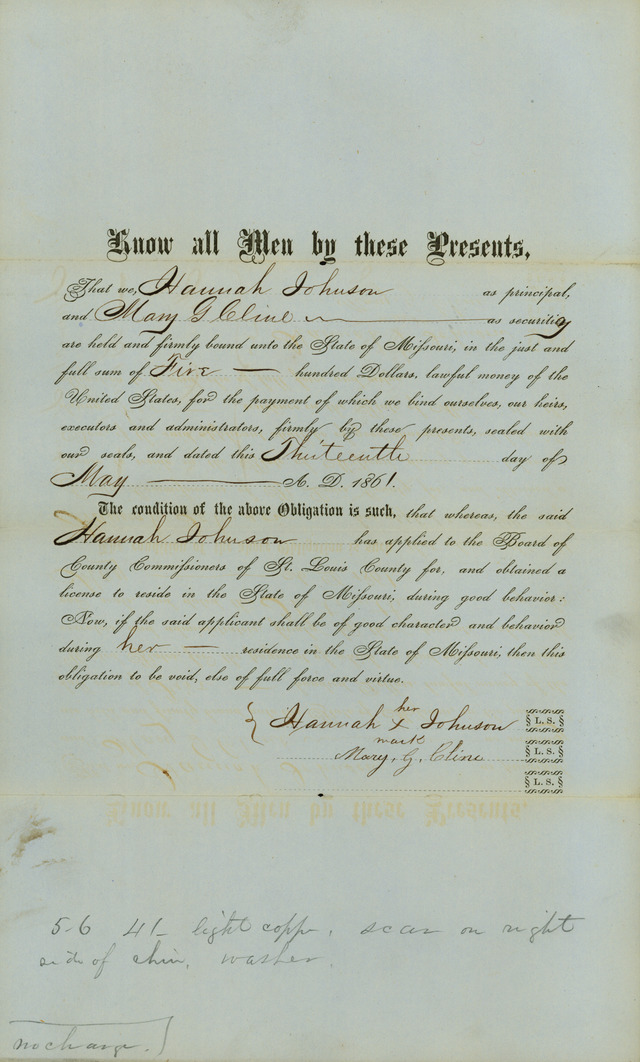 Know all Men by these Presents,
That we, Hannah Johnson as principal,
and Mary G Cline as security
are held and firmly bound unto the State of Missouri, in the just and
full sum of Five hundred Dollars, lawful money of the
United States, for the payment of which we bind ourselves, our heirs,
executors and administrators, firmly by these presents, sealed with
our seals, and dated this Thirteenth day of
May A. D. 1861.
The condition of the above Obligation is such, that whereas, the said
Hannah Johnson has applied to the Board of
County Commissioners of St. Louis County for, and obtained a
license to reside in the State of Missouri, during good behavior:
Now, if the said applicant shall be of good character and behavior
during her residence in the State of Missouri, then this
obligation to be void, else of full force and virtue.
her
Hannah x Johnson L. S.
mark
Mary. G. Cline L. S.
L. S.
5-6 41- light copp. scar on right
side of chin, washer.
no charge.